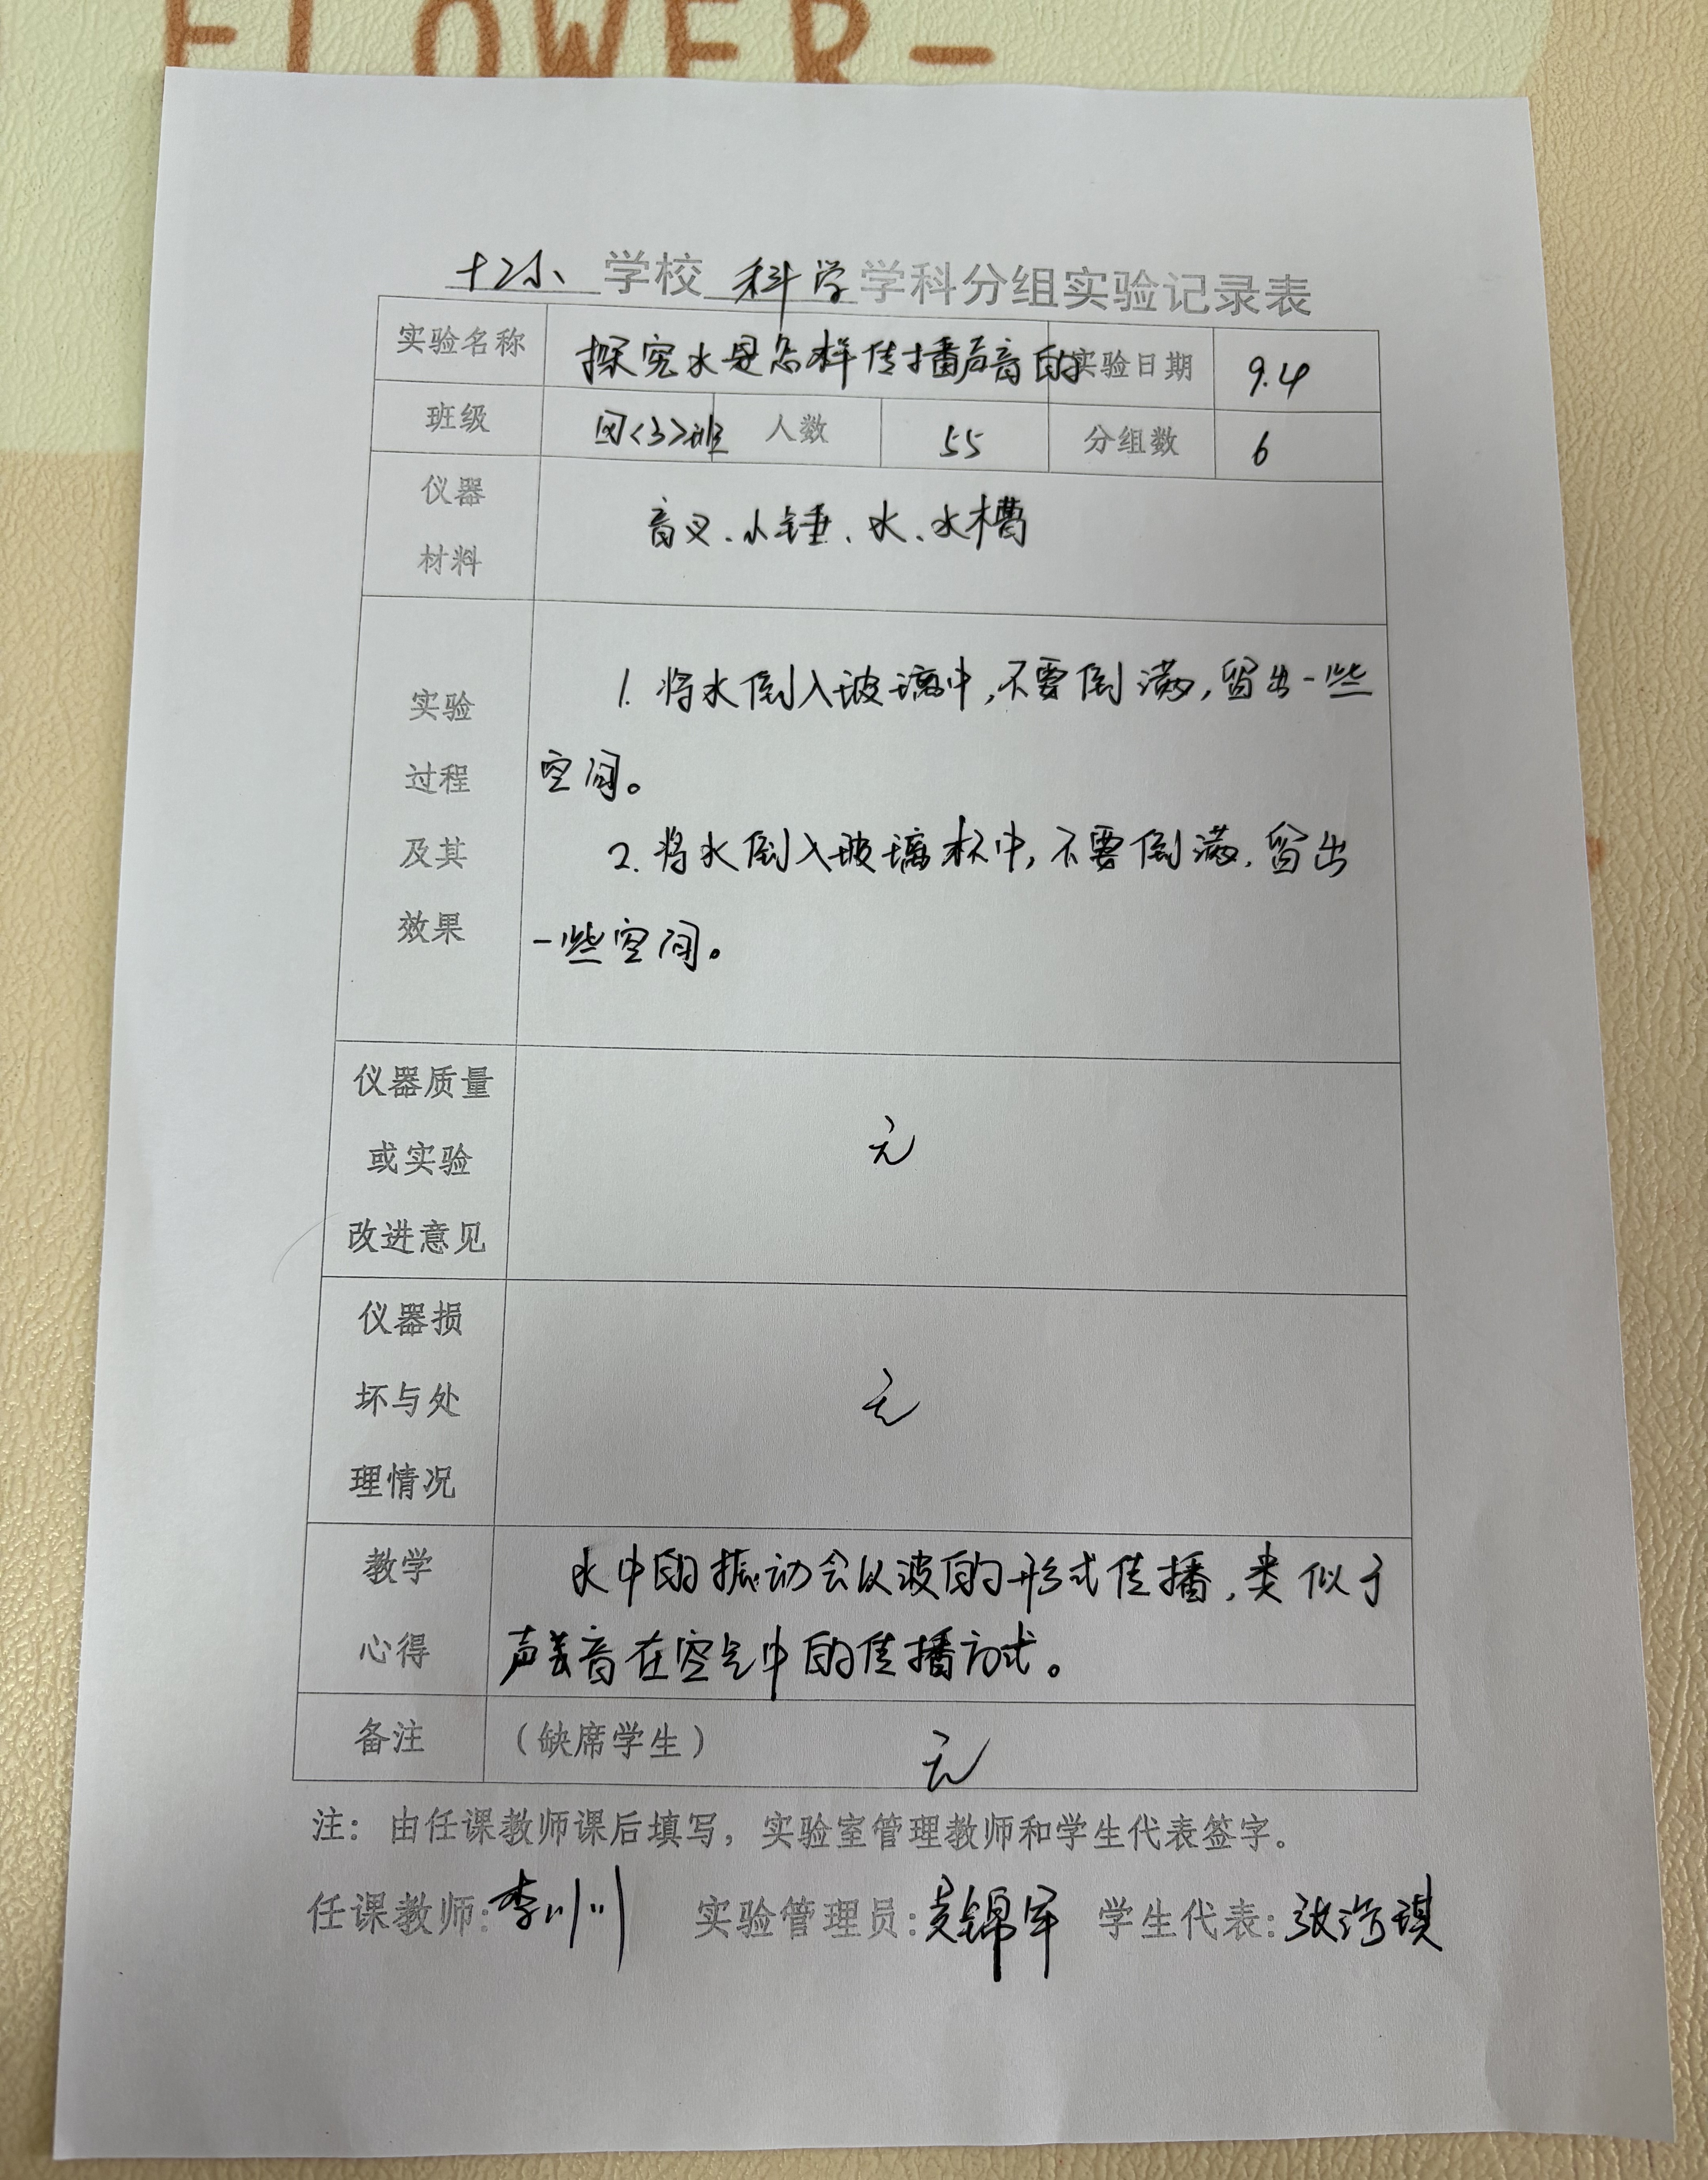 FLOWER-
十二小 学校 科学 学科分组实验记录表
实验名称 探究水是怎样传播声音的 实验日期 9.4
班级 四<3>班 人数 55 分组数 6
仪器
材料
音叉、小锤、水、水槽
实验
过程
及其
效果
1. 将水倒入玻璃中,不要倒满,留出一些
空间。
2. 将水倒入玻璃杯中,不要倒满,留出
一些空间。
仪器质量
或实验
改进意见
无
仪器损
坏与处
理情况
无
教学
心得
水中的振动会以波的形式传播,类似于
声音在空气中的传播方式。
备注 (缺席学生) 无
注:由任课教师课后填写,实验室管理教师和学生代表签字。
任课教师:李川川 实验管理员: 锦军 学生代表:张 琪